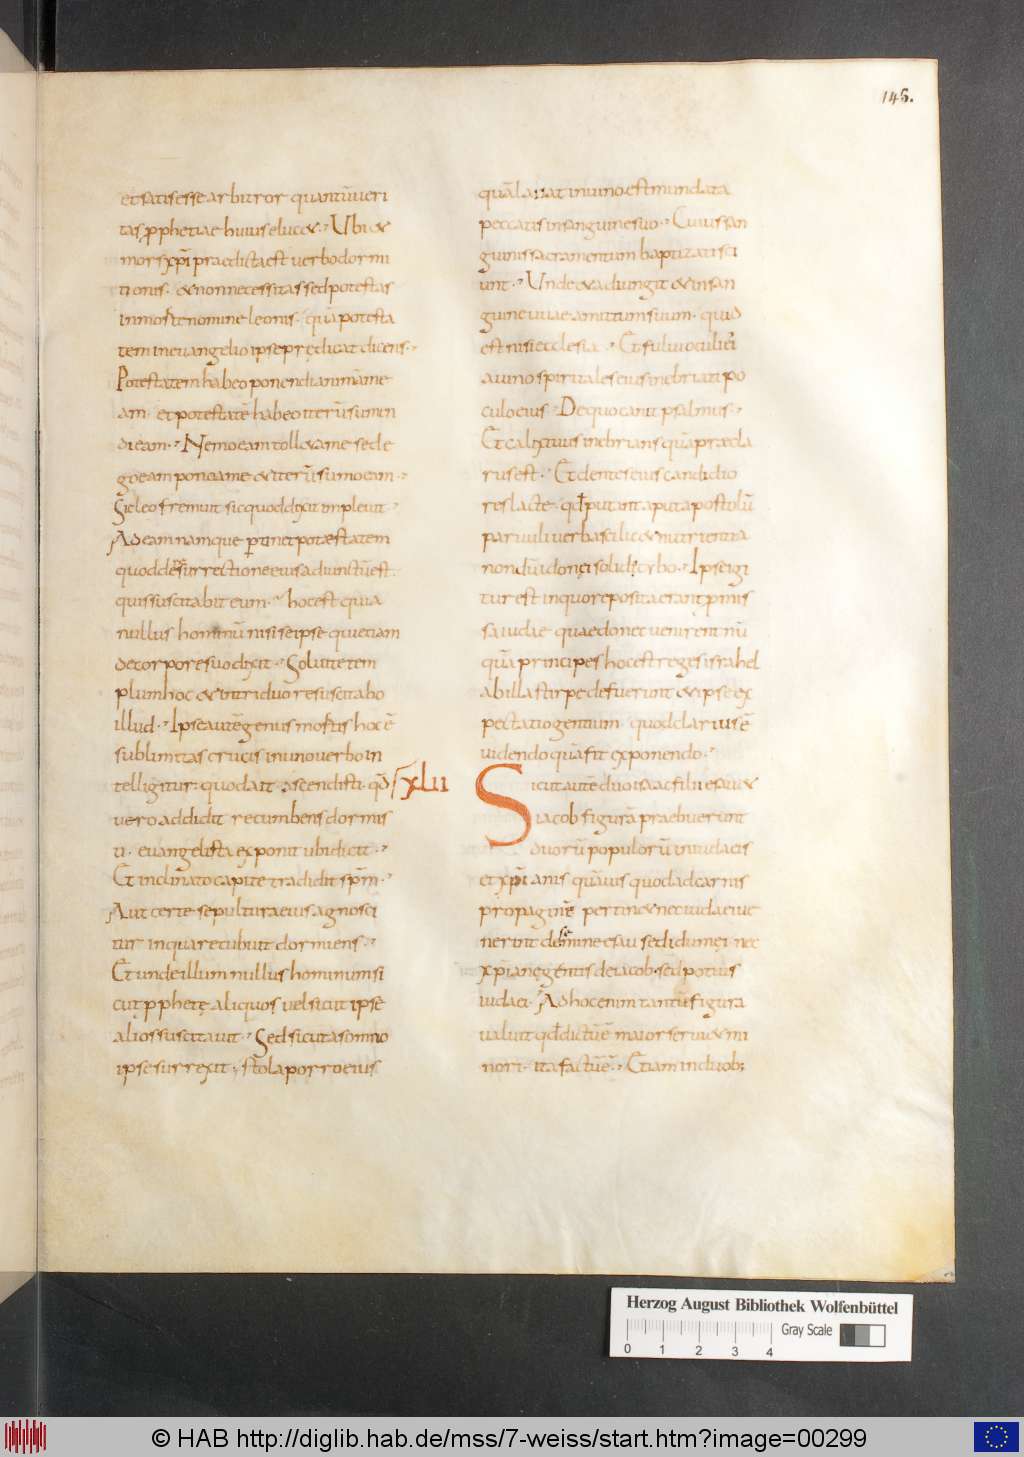 145.
et satis esse arbitror quantū ueri
tas p̱phetiae huius eluc&. Ubi &
mors xp̄i praedicta est uerbo dormi
tionis. & non necessitas sed potestas
in morte nomine leonis. quā potesta
tem in euangelio ipse prędicat dicens.
Potestatem habeo ponendi animā me
am. et potestatē habeo iterū sumen
di eam. Nemo eam toll& a me sed e
go eam pono a me & iterū sumo eam.
Sic leo fremuit sic quod dixit impleuit
Ad eam namque ꝑtinet potæstatem
quod de resurrectione eius adiunctū est.
quis suscitabit eum. hoc est quia
nullus hominū nisi se ipse qui etiam
de corpore suo dixit. Soluite tem
plum hoc & in triduo resuscitabo
illud. Ipse autē genus mortis hoc ē
sublimitas crucis in uno uerbo in
tellegitur. quod ait ascendisti. qđ
uero addidit recumbens dormis
ti. euangelista exponit ubi dicit.
Et inclinato capite tradidit sp̄m.
Aut certe sepultura eius agnosci
tur in qua recubuit dormiens.
Et unde illum nullus hominum si
cut p̱phetę aliquos uel sicut ipse
alios suscitauit. Sed sicut a somno
ipse surrexit. stola porro eius
quā lauat in uino est mundata
peccatis in sanguine suo. Cuius san
guinis sacramentum baptizati sci
unt. Unde & adiungit & in san
guine uuae amictum suum. quid
est nisi ecclesia. Et fului oculi ei
a uino spiritales eius inebriati po
culo eius. De quo canit psalmus.
Et calix tuus inebrians quā præcla
rus est. Et dentes eius candidio
res lacte. qđ putant aput apostolū
paruuli uerbascilic& nutrientia
nondū idonei solido cibo. Ipse igi
tur est in quo reposita erant ꝑmis
sa iudae quae donec uenirent nū
quā principes hoc est reges israhel
ab illa stirpe defuerunt & ipse ex
pectatio gentium. quod clarius ē
uidendo quā fit exponendo.
xlii
Sicut autē duo isaac filii esau &
iacob figurā praebuerunt
duorū populorū in iudaeis
et xp̄ianis quāuis quod ad carnis
propaginē pertin& nec iudaei ue
nerint de semine esau sed idumei. nec
xp̄ianę gentis de iacob. sed potius
iudaei. Ad hoc enim tantū figura
ualuit qđ dictū ē maior serui& mi
nori. ita factū ē. Etiam in duob;
Herzog August Bibliothek Wolfenbüttel
Gray Scale
0 1 2 3 4
© HAB http://diglib.hab.de/mss/7-weiss/start.htm?image=00299